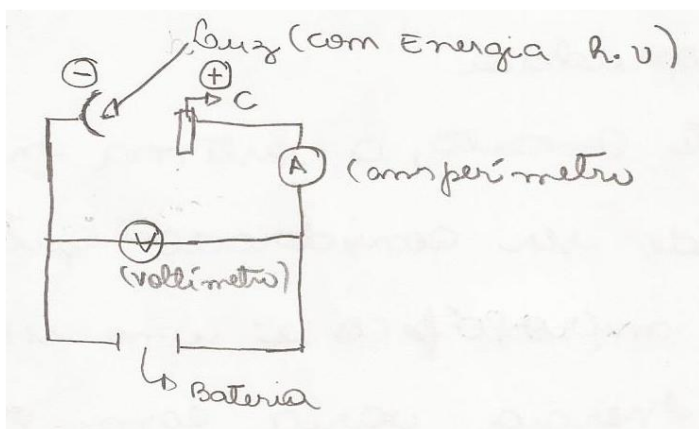 Luz (com Energia h.υ)
⊖
⊕
C
A
(amperímetro
V
(voltímetro)
Bateria